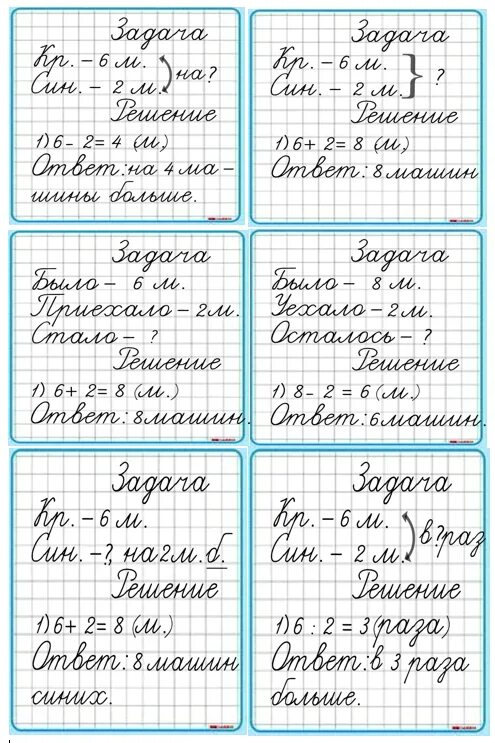 Задача
Кр. – 6 м.
Син. – 2 м. на?
Решение
1) 6 – 2 = 4 (м.)
Ответ: на 4 ма –
шины больше.
Задача
Кр. – 6 м.
Син. – 2 м. } ?
Решение
1) 6 + 2 = 8 (м.)
Ответ: 8 машин
Задача
Было – 6 м.
Приехало – 2 м.
Стало – ?
Решение
1) 6 + 2 = 8 (м.)
Ответ: 8 машин.
Задача
Было – 8 м.
Уехало – 2 м.
Осталось – ?
Решение
1) 8 – 2 = 6 (м.)
Ответ: 6 машин.
Задача
Кр. – 6 м.
Син. – ?, на 2 м. б.
Решение
1) 6 + 2 = 8 (м.)
Ответ: 8 машин
синих.
Задача
Кр. – 6 м.
Син. – 2 м. в ? раз
Решение
1) 6 : 2 = 3 (раза)
Ответ: в 3 раза
больше.